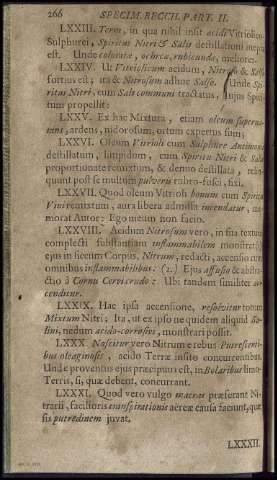 266 SPECIM. BECCH. PART. II.
LXXIII. Terra, in qua nihil inest acidi Vitriolico-
Sulphurei, Spiritus Nitri & Salis destillationi inepta
est. Unde colorata, ochrea, rubicunda, meliores.
LXXIV. Ut Vitriolicum acidum, Nitroso & Salso
fortius est; ita & Nitrosum adhuc Salso. Unde Spi-
ritus Nitri, cum Sale communi tractatus, hujus Spiri-
tum propellit:
LXXV. Ex hac Mixtura, etiam oleum superna-
tans, ardens, nidorosum, ortum expertus sum;
LXXVI. Oleum Vitrioli cum Sulphure Antimonii
destillatum, limpidum, cum Spiritu Nitri & Salis
proportionate remixtum, & denuo destillata, relin-
quunt post se multum pulveris rubro-fusci, fixi.
LXXVII. Quod oleum Vitrioli bonum cum Spiritu
Vini remixtum, aura libera admissa incendatur, me-
morat Autor: Ego meum non facio.
LXXVIII. Acidum Nitrosum vero, in sua textura
complecti substantiam inflammabilem monstrat
ejus in siccum Corpus, Nitrum, redacti, accensio cum
omnibus inflammabilibus: (2.) Ejus affusio & abstra-
ctio à Cornu Cervi crudo: Ubi tandem similiter ac-
cenditur.
LXXIX. Hac ipsa accensione, resolvitur totum
Mixtum Nitri; Ita, ut ex ipso ne quidem aliquid Sa-
lini, nedum acido-corrosivi, monstrari possit.
LXXX. Nascitur vero Nitrum e rebus Putrescenti-
bus oleaginosis, acido Terræ insito concurrentibus.
Unde proventus ejus præcipuus est, in Bolaribus limo-
Terris, si, quæ debent, concurrant.
LXXXI. Quod vero vulgo macras præferant Ni-
trarii, facilioris transpirationis aëreæ causa faciunt, quæ
sis putredinem juvat.
LXXXII.